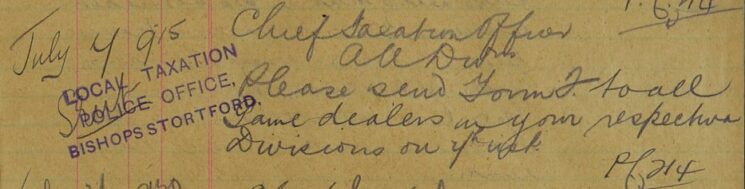 July 4 9 15
Chief Taxation Officer
All Divns
LOCAL TAXATION
POLICE OFFICE,
BISHOPS STORTFORD.
Please send Form F. to all
Game dealers in your respective
Divisions on 4th inst.
Pf 214